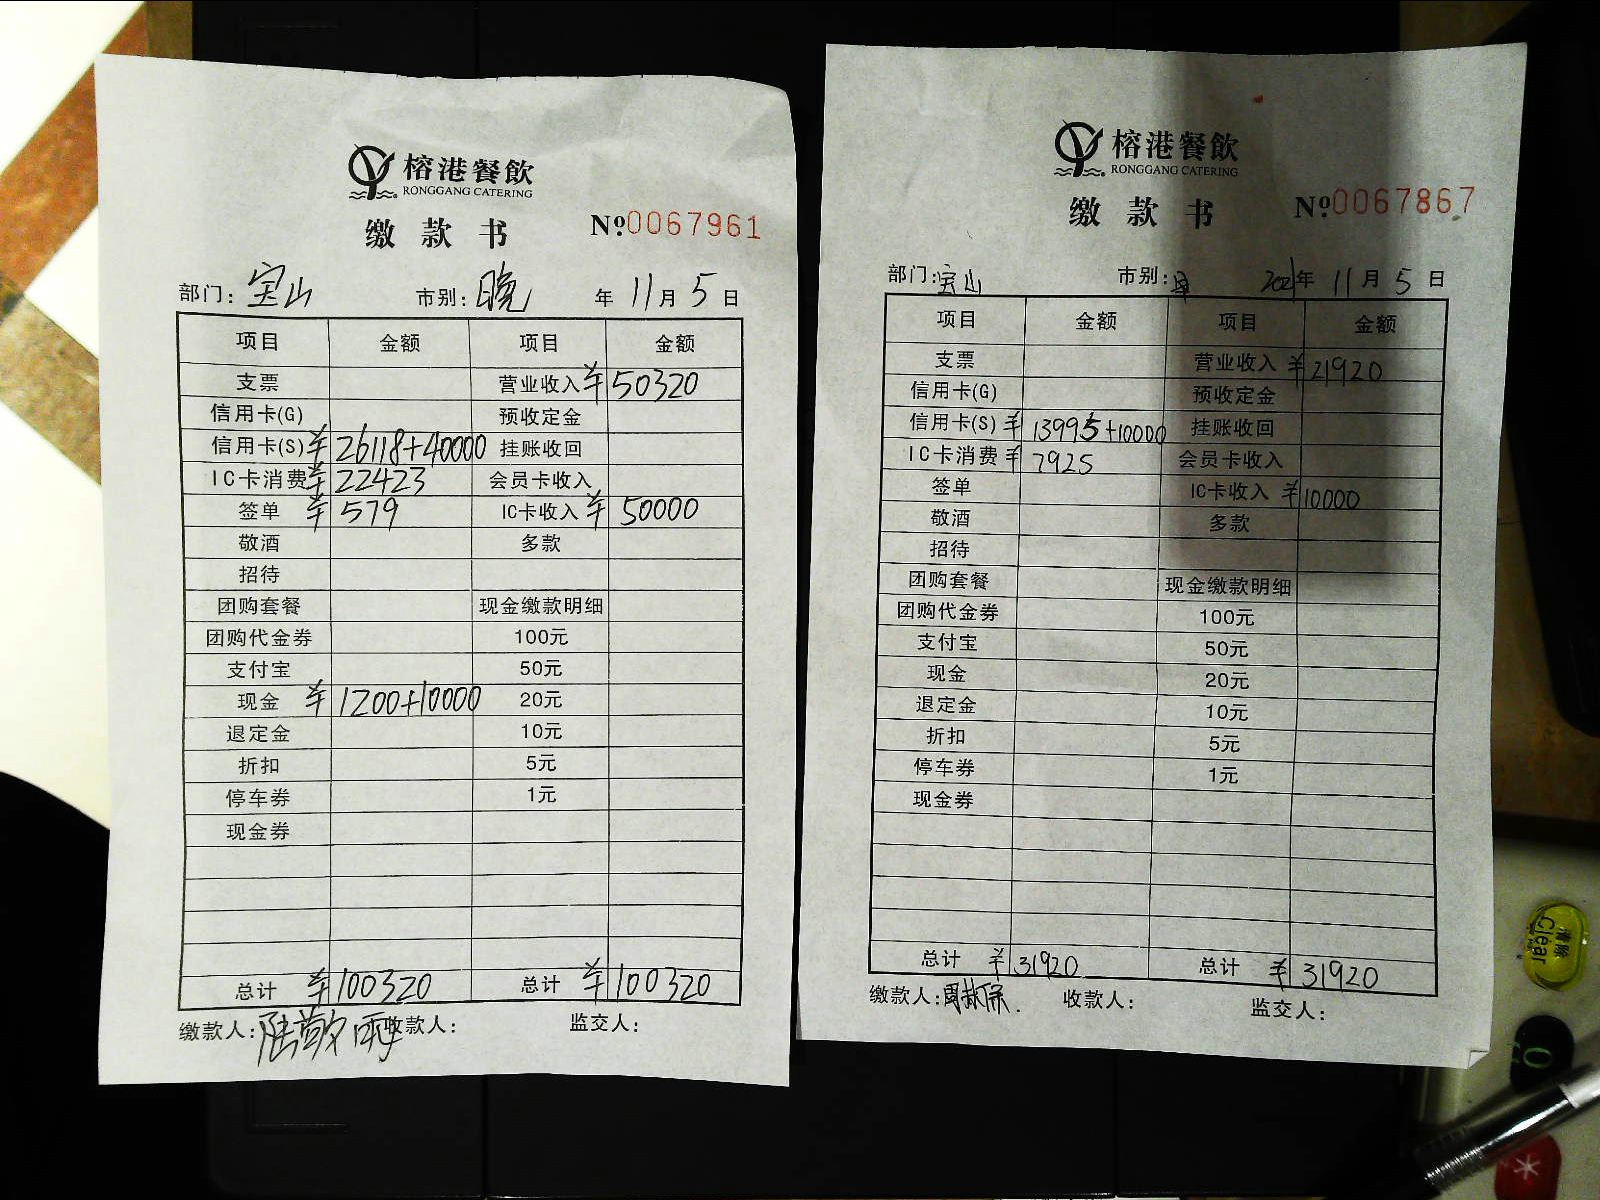 榕港餐飲
RONGGANG CATERING
缴款书 №0067961
部门:宝山 市别:晚 年 11月 5日
项目 金额 项目 金额
支票 营业收入 ¥50320
信用卡(G) 预收定金
信用卡(S) ¥26118+40000 挂账收回
IC卡消费 ¥22423 会员卡收入
签单 ¥579 IC卡收入 ¥50000
敬酒 多款
招待
团购套餐 现金缴款明细
团购代金券 100元
支付宝 50元
现金 ¥1200+10000 20元
退定金 10元
折扣 5元
停车券 1元
现金券
总计 ¥100320 总计 ¥100320
缴款人: 收款人: 监交人:
榕港餐飲
RONGGANG CATERING
缴款书 №0067867
部门:宝山 市别: 2021年 11月 5日
项目 金额 项目 金额
支票 营业收入 ¥21920
信用卡(G) 预收定金
信用卡(S) ¥13995+10000 挂账收回
IC卡消费 ¥7925 会员卡收入
签单 IC卡收入 ¥10000
敬酒 多款
招待
团购套餐 现金缴款明细
团购代金券 100元
支付宝 50元
现金 20元
退定金 10元
折扣 5元
停车券 1元
现金券
总计 ¥31920 总计 ¥31920
缴款人: 收款人: 监交人:
清除
Clear
0
*